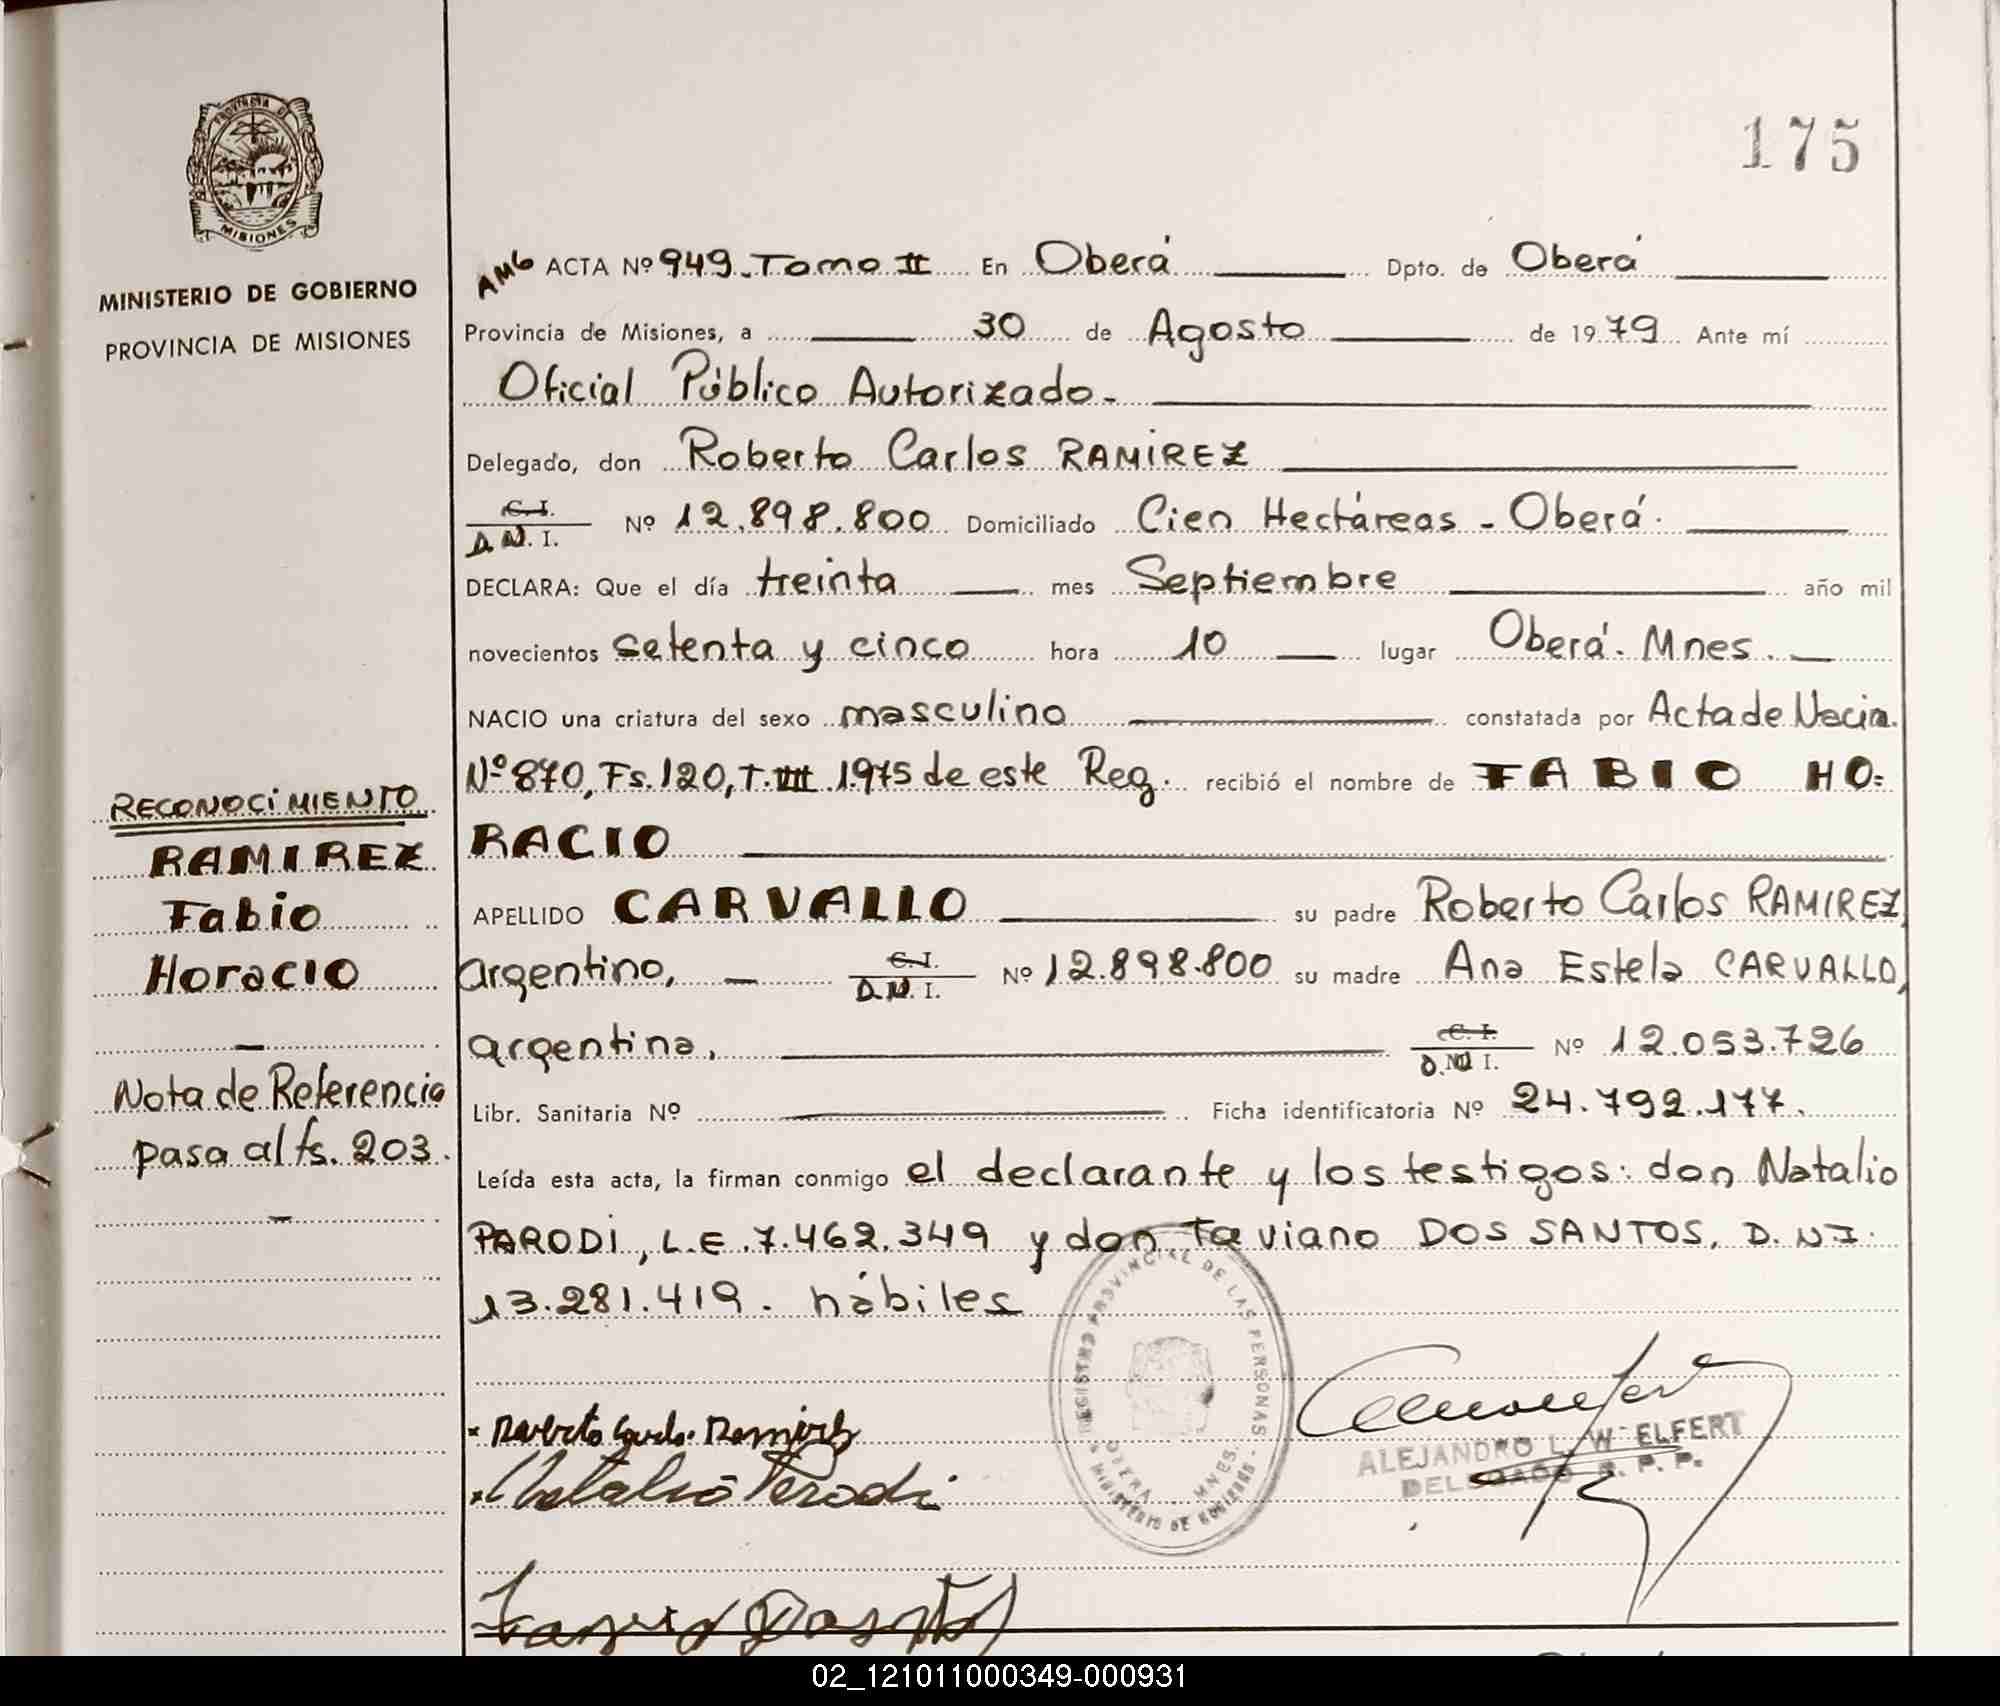 175
PROVINCIA DE
MISIONES
MINISTERIO DE GOBIERNO
PROVINCIA DE MISIONES
AMG ACTA Nº 949. Tomo II En Oberá Dpto. de Oberá
Provincia de Misiones, a 30 de Agosto de 1979 Ante mí
Oficial Público Autorizado.
Delegado, don Roberto Carlos RAMIREZ
C. I.
D.N. I. Nº 12.898.800 Domiciliado Cien Hectáreas - Oberá.
DECLARA: Que el día treinta mes Septiembre año mil
novecientos setenta y cinco hora 10 lugar Oberá. Mnes.
NACIO una criatura del sexo masculino constatada por Acta de Nacim.
Nº 870, Fs. 120, T. III 1.975 de este Reg. recibió el nombre de FABIO HO=
RACIO
APELLIDO CARVALLO su padre Roberto Carlos RAMIREZ,
argentino, C. I.
D.N. I. Nº 12.898.800 su madre Ana Estela CARVALLO,
argentina, C. I.
D.N. I. Nº 12.053.726
Libr. Sanitaria Nº Ficha identificatoria Nº 24.792.177.
Leída esta acta, la firman conmigo el declarante y los testigos: don Natalio
PARODI, L.E. 7.462.349 y don Taviano DOS SANTOS, D.N.I.
13.281.419. hábiles
RECONOCIMIENTO
RAMIREZ
Fabio
Horacio
Nota de Referencia
pasa al fs. 203.
Roberto Carlos Ramirez
Natalio Parodi
REGISTRO PROVINCIAL DE LAS PERSONAS
OBERA MNES.
MINISTERIO DE GOBIERNO
ALEJANDRO L. W. ELFERT
DELEGADO R. P. P.
02_121011000349-000931